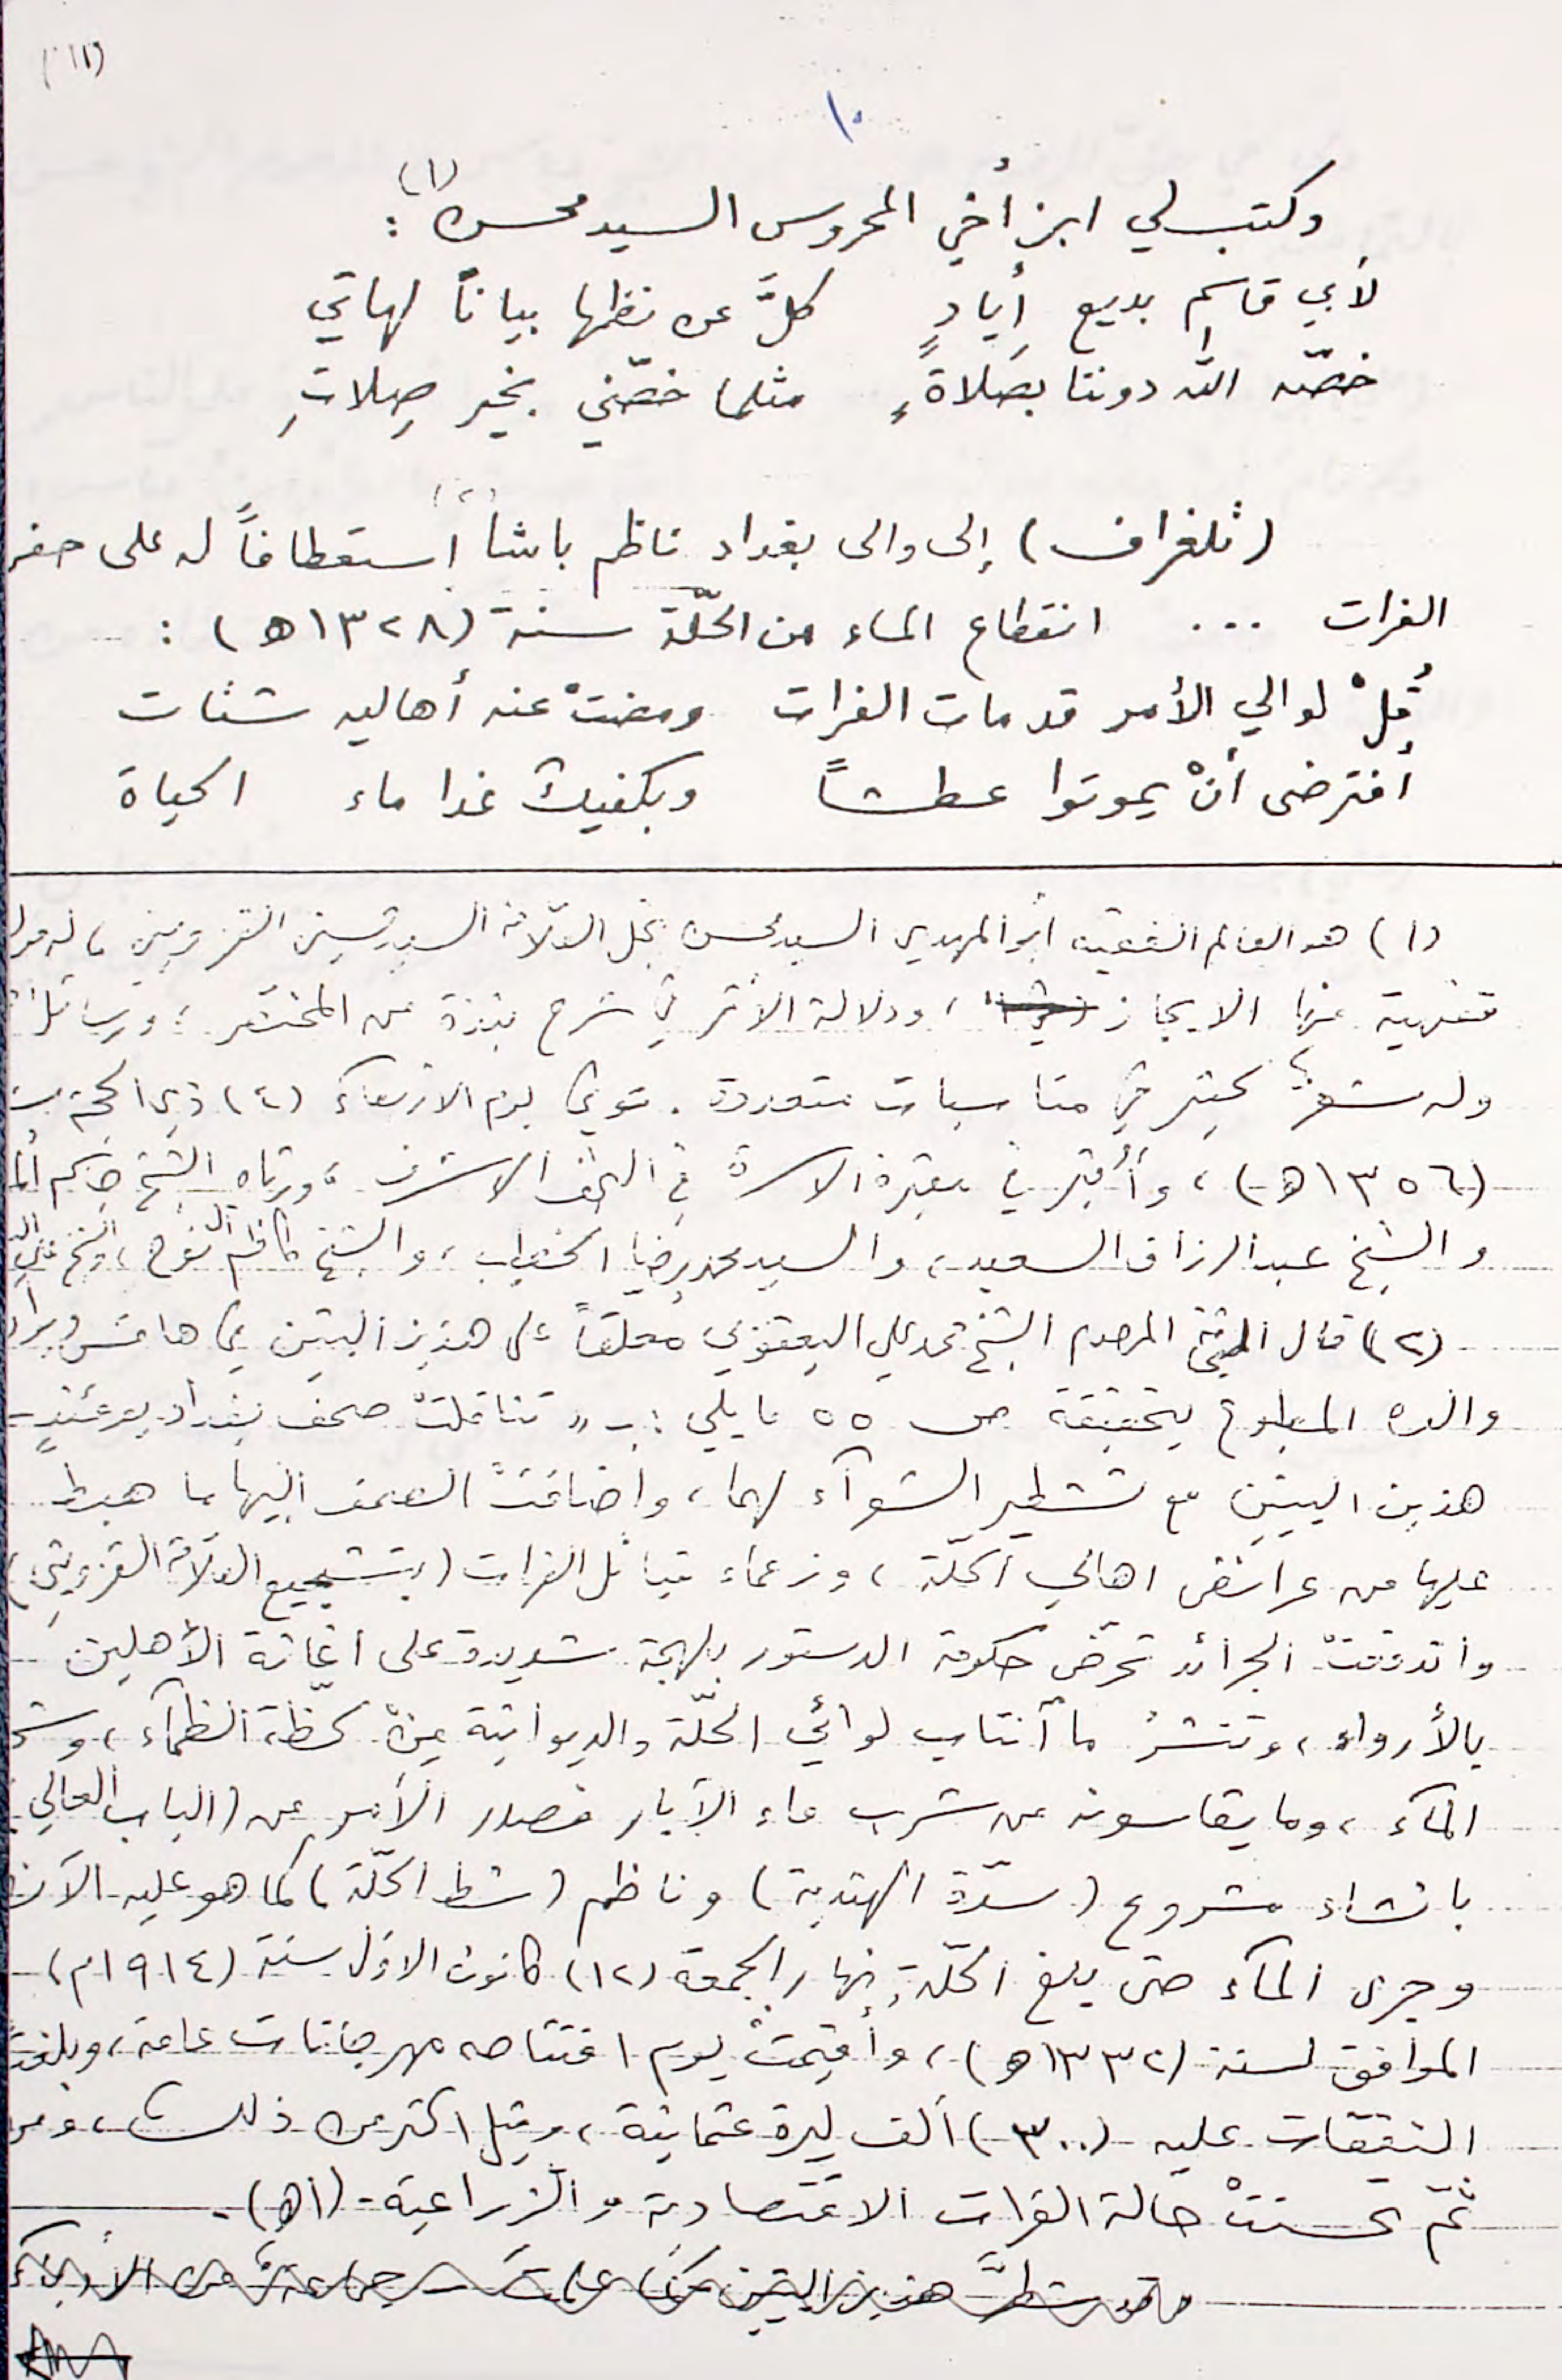 (١١)
١٠
وكتب لي ابن أخي المحروس السيد محسن (١) :
لأبي قاسمٍ بديع أيادٍ كلَّ عن نظمها بياناً لهاتي
خصّه الله دوننا بصَلاةٍ مثلما خصّني بخير صِلاتِ
(تلغراف) إلى والى بغداد ناظم باشا (٢) استعطافاً له على حفر
الفرات ... انقطاع الماء من الحلّة سنة (١٣٢٨ هـ) :
قُلْ لوالي الأمر قد مات الفرات ومضتْ عنه أهاليه شتات
أفترضى أنْ يموتوا عطشاً وبكفيك غدا ماء الحياة
(١) هو العالم الفقيه أبو المهدي السيد محسن نجل العلّامة السيد حسين القزويني، له
فقهية منها الايجاز، ودلالة الأثر في شرح نبذة من المختصر، ورسائل
وله شعرٌ كثير في مناسبات متعددة. توفي يوم الاربعآء (٤) ذي الحجة
(١٣٥٦ هـ)، وأُقبر في مقبرة الاسرة في النجف الاشرف، ورثاه الشيخ
والشيخ عبد الرزاق السعيد، والسيد محمد رضا الخطيب، والشيخ كاظم آل نوح، والشيخ
(٢) قال الشيخ المرحوم الشيخ محمد علي اليعقوبي مُعلقاً على هذين البيتين في هامش
والده المطبوع بتحقيقه ص ٥٥ ما يلي :ـ « تناقلتْ صحف بغداد يومئذٍ
هذين البيتين مع تشطير الشعرآء لهما، واضافتْ الصحف إليهما ما هبط
عليها من عرائض اهالي الحلّة، وزعماء قبائل الفرات (بتشجيع العلّامة القزويني)
واندفعتْ الجرائد تحرّض حكومة الدستور بلهجة شديدة على اغاثة الأهلين
بالأرواء، وتنشرُ ما آنتاب لوائي الحلّة والديوانية من لحظة الظمآء،
المآء، وما يقاسونه من شرب ماء الآبار فصدر الأمر من (الباب العالي)
بانشاء مشروع (سدّة الهندية) وناظم (شط الحلّة) كما هو عليه الآن
وجرى المآء حتى بلغ الحلّة نهار الجمعة (١٢) كانون الاوّل سنة (١٩١٤م)
الموافق لسنة (١٣٣٢ هـ)، وأُقيمتْ يوم افتتاحه مهرجانات عامة، وبلغتْ
النفقات عليه (٣٠٠) ألف ليرة عثمانية، وقيل اكثر من ذلك، ومن
ثمّ تحسنتْ حالة الفرات الاقتصادية والزراعية - (اهـ).